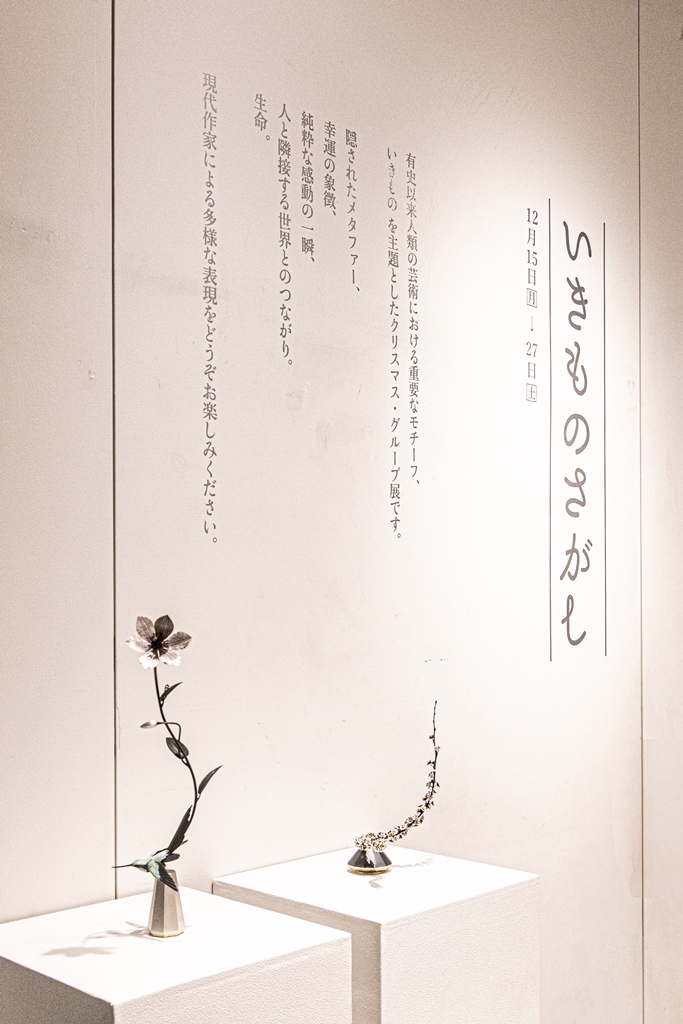 いきものさがし
12月15日月→27日土
有史以来人類の芸術における重要なモチーフ、
いきもの を主題としたクリスマス・グループ展です。
隠されたメタファー、
幸運の象徴、
純粋な感動の一瞬、
人と隣接する世界とのつながり。
生命。
現代作家による多様な表現をどうぞお楽しみください。